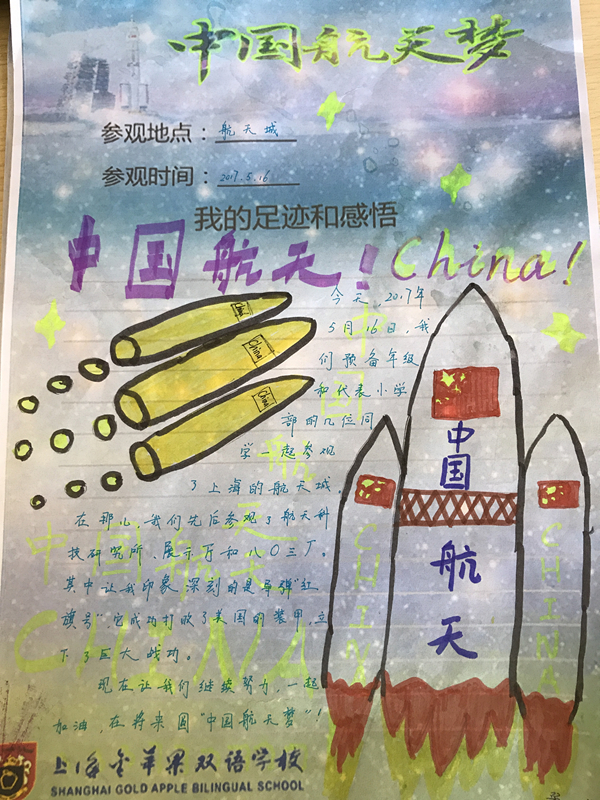 中国航天梦
参观地点：航天城
参观时间：2017.5.16
我的足迹和感悟
中国航天！China！
今天，2017年
5月16日，我
们预备年级
和代表小学
部的几位同
学一起参观
了上海的航天城。
在那儿，我们先后参观了航天科
技研究所、展示厅和八〇三厂。
其中让我印象深刻的是导弹“红
旗号”，它成功打败了美国的装甲，立
下了巨大战功。
现在让我们继续努力，一起
加油，在将来圆“中国航天梦”！
China
China
China
中国航天
CHINA
CHINA
中国航天
中国航天
CHINA
上海金苹果双语学校
SHANGHAI GOLD APPLE BILINGUAL SCHOOL